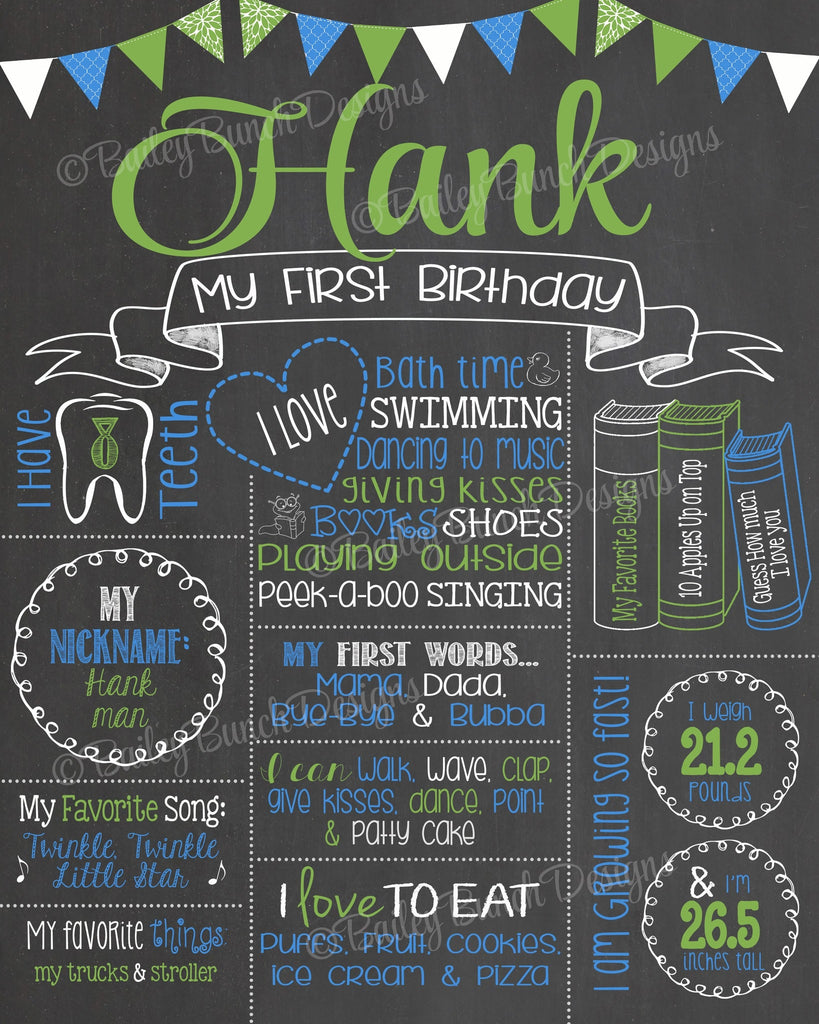 Hank
My First Birthday
I Have
8
Teeth
I LOVE
Bath time
SWIMMING
Dancing to music
giving kisses
BOOKS SHOES
Playing outside
Peek-a-boo SINGING
My Favorite Books
10 Apples Up on Top
Guess How much
I love you
MY
NICKNAME:
Hank
man
MY FIRST WORDS...
Mama, Dada,
Bye-Bye & Bubba
I can walk, wave, clap,
give kisses, dance, point
& Patty cake
My Favorite Song:
Twinkle, Twinkle
Little Star
My favorite things
my trucks & stroller
I love TO EAT
Puffs, Fruit, cookies,
ice cream & pizza
I am Growing so fast!
I weigh
21.2
Pounds
& I'm
26.5
inches tall
©Bailey Bunch Designs
©Bailey Bunch Designs
©Bailey Bunch Designs
©Bailey Bunch Designs
©Bailey Bunch Designs